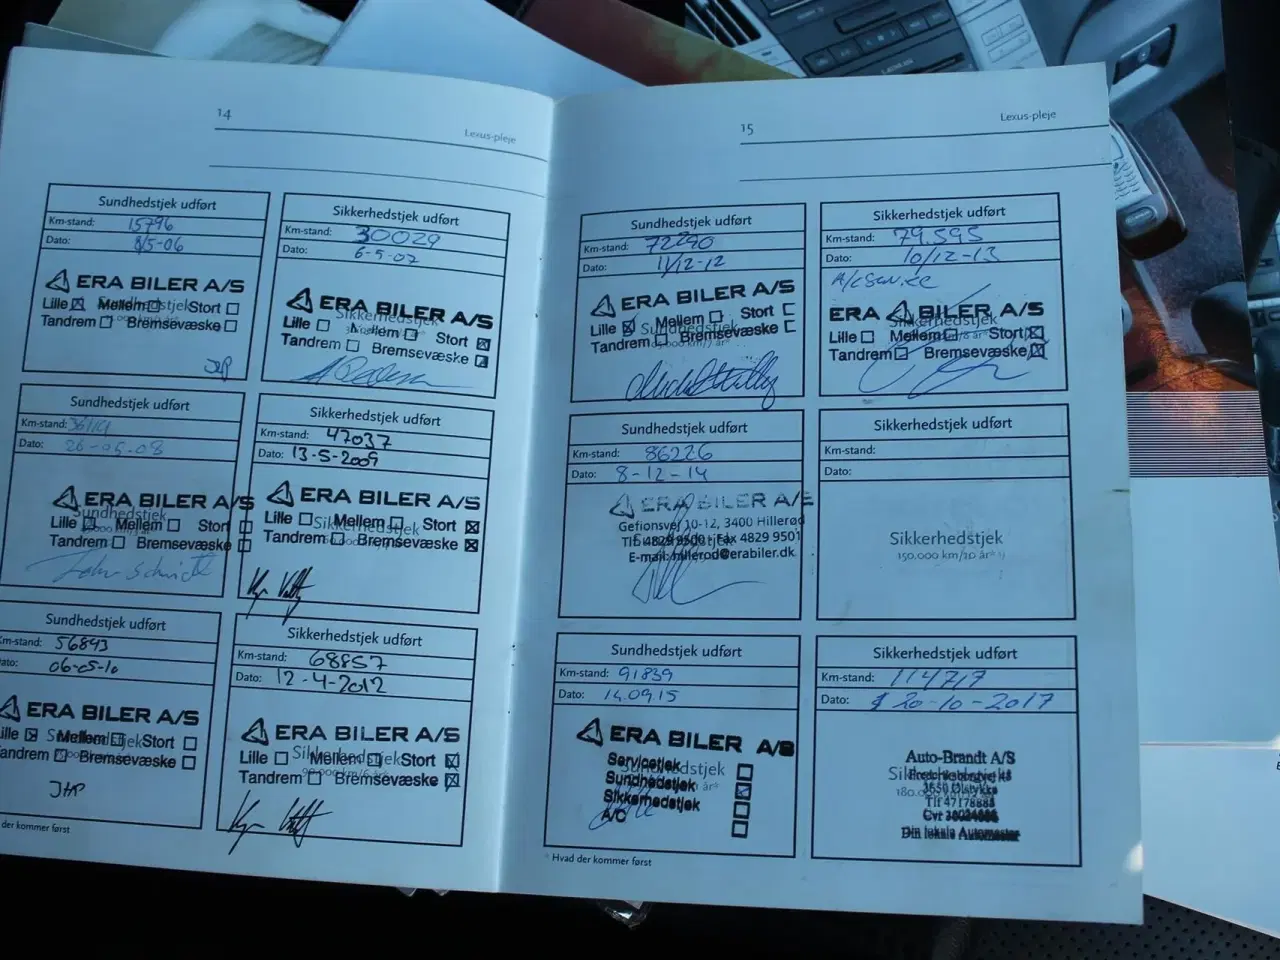 LEXUS
14
Lexus-pleje
Sundhedstjek udført
Km-stand: 15796
Dato: 8/5-06
ERA BILER A/S
Lille Mellem Stort
Tandrem Bremsevæske
JHP
Sikkerhedstjek udført
Km-stand: 30029
Dato: 6-5-07
Sikkerhedstjek
ERA BILER A/S
Lille Mellem Stort
Tandrem Bremsevæske
Sundhedstjek udført
Km-stand:
Dato: 26-05-08
ERA BILER A/S
Sundhedstjek
Lille Mellem Stort
Tandrem Bremsevæske
John Schmidt
Sikkerhedstjek udført
Km-stand: 47037
Dato: 13-5-2009
ERA BILER A/S
Lille Mellem Stort
Sikkerhedstjek
Tandrem Bremsevæske
Sundhedstjek udført
Km-stand: 56843
Dato: 06-05-10
ERA BILER A/S
Lille Mellem Stort
Tandrem Bremsevæske
JHP
der kommer først
Sikkerhedstjek udført
Km-stand: 68857
Dato: 12-4-2012
ERA BILER A/S
Lille Sikkerhedstjek Stort
Tandrem Bremsevæske
15
Lexus-pleje
Sundhedstjek udført
Km-stand: 72290
Dato: 11/12-12
ERA BILER A/S
Lille Mellem Stort
Sundhedstjek
Tandrem Bremsevæske
Sikkerhedstjek udført
Km-stand: 79.595
Dato: 10/12-13
A/C Service
ERA BILER A/S
Sikkerhedstjek
Lille Mellem Stort
Tandrem Bremsevæske
Sundhedstjek udført
Km-stand: 86226
Dato: 8-12-14
ERA BILER A/S
Gefionsvej 10-12, 3400 Hillerød
Tlf. 4829 9500 · Fax 4829 9501
E-mail: hillerod@erabiler.dk
Sikkerhedstjek udført
Km-stand:
Dato:
Sikkerhedstjek
150.000 km/10 år*
Sundhedstjek udført
Km-stand: 91839
Dato: 14.09.15
ERA BILER A/S
Servicetjek
Sundhedstjek
Sikkerhedstjek
A/C
* Hvad der kommer først
Sikkerhedstjek udført
Km-stand: 114717
Dato: 20-10-2017
Auto-Brandt A/S
3650 Ølstykke
Tlf 47178888
Din lokale Automester